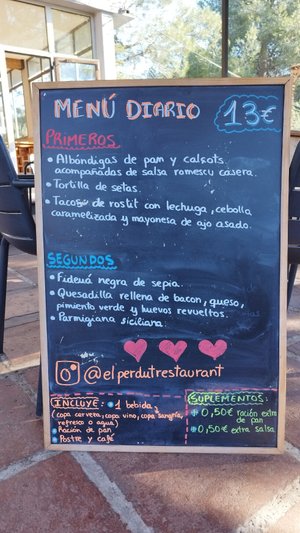 MENÚ DIARIO 13€
PRIMEROS
• Albóndigas de pan y calçots,
acompañadas de salsa romescu casera.
• Tortilla de setas.
• Tacos de rostit con lechuga, cebolla
caramelizada y mayonesa de ajo asado.
SEGUNDOS
• Fideuá negra de sepia.
• Quesadilla rellena de bacon, queso,
pimiento verde y huevos revueltos.
• Parmigiana siciliana.
@elperdutrestaurant
INCLUYE: • 1 bebida
(copa cerveza, copa vino, copa sangría,
refresco o agua)
• Ración de pan
• Postre y café
SUPLEMENTOS:
• 0,50€ ración extra
de pan
• 0,50€ extra salsa